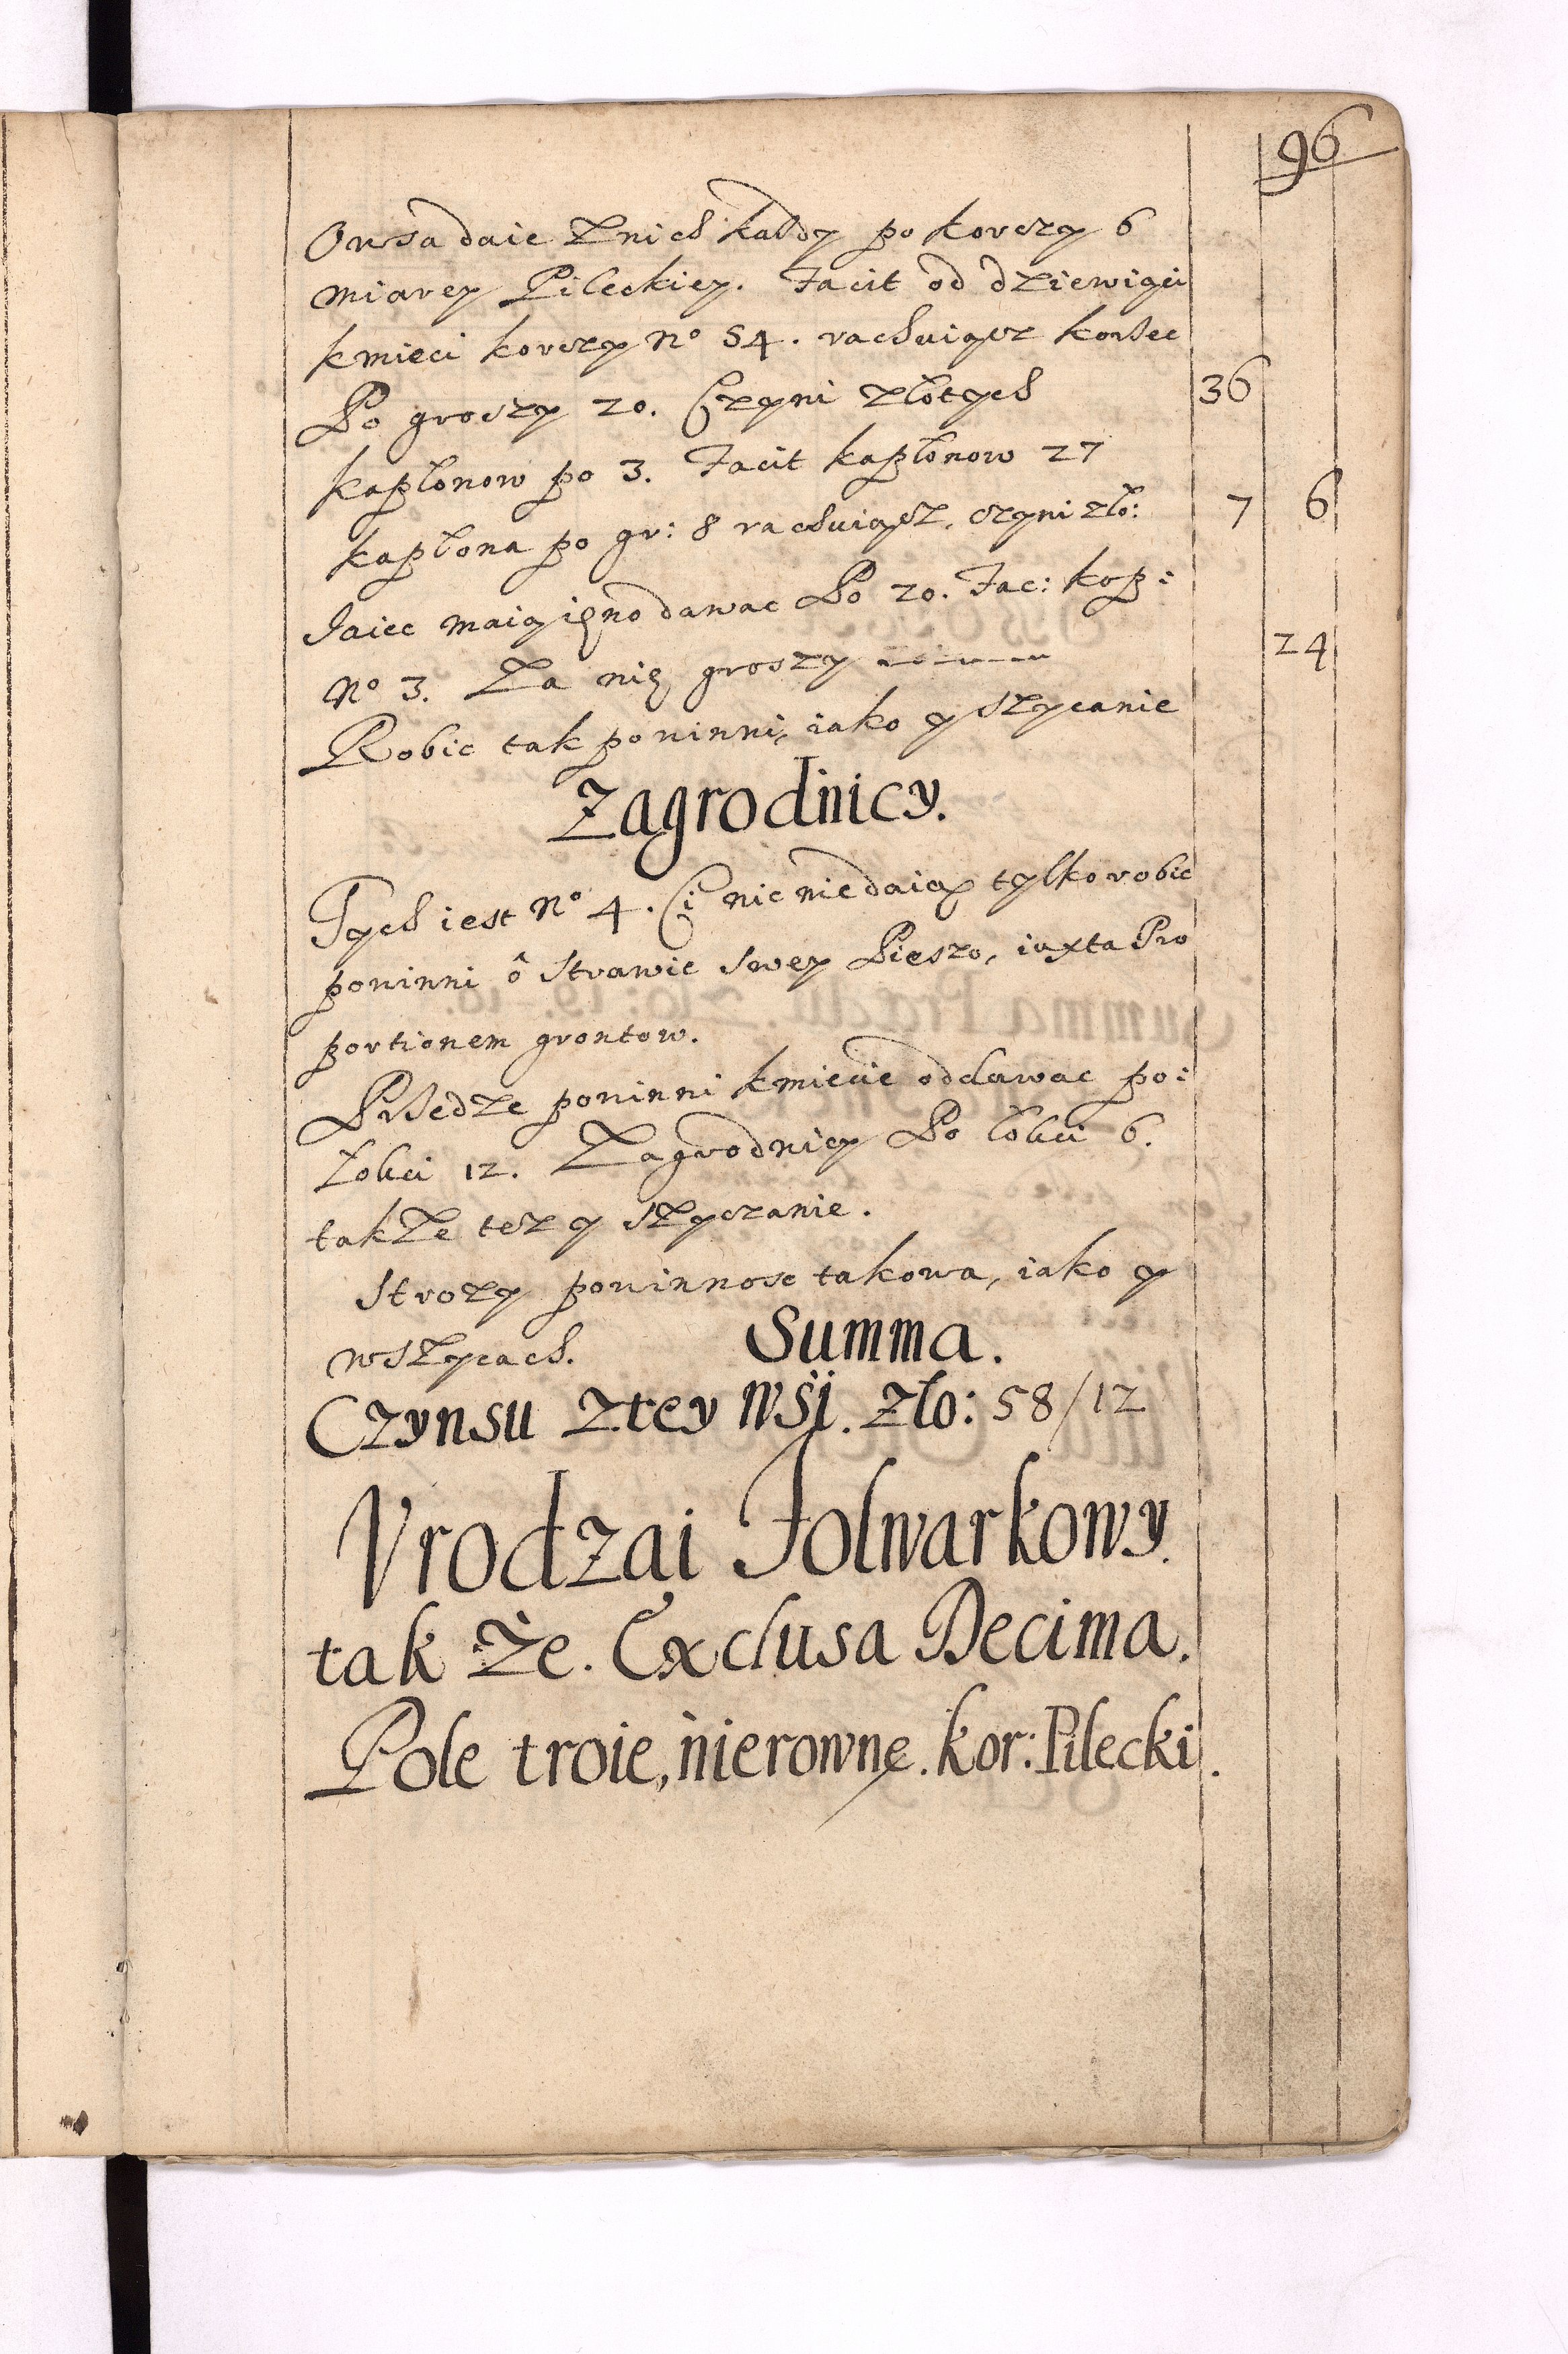 96
Owsa daie Znich kazdy po korczy 6
miarey Pileckiey. Facit od dziewiąci
kmieci korczy No 54. rachuiącz korzec
Po groszy 20. Czyni złotych 36
kapłonow po 3. Facit kapłonow 27
kapłona po gr: 8 rachuiącz, czyni zło: 7 6
Jaiec maią ięno dawac Po 20. Fac: kop:
No 3. Za nię groszy 24
Robic tak powinni, iako y Szycanie
Zagrodnicy.
Tych iest No 4. Ci nic niedaią tylko robic
powinni ô Strawie Swey Pieszo, iuxta Pro
portionem grontow.
Przedze powinni kmiecie oddawac po:
Łokci 12. Zagrodnicy Po łokci 6.
takze tesz y Szyczanie.
Strozy powinnosc takowa, iako y
wSzycach. Summa.
Czynsu ztey wśi. zło: 58/12
Vrodzai Folwarkowy.
tak Że. Exclusa Decima.
Pole troie, nierowne. kor: Pilecki.